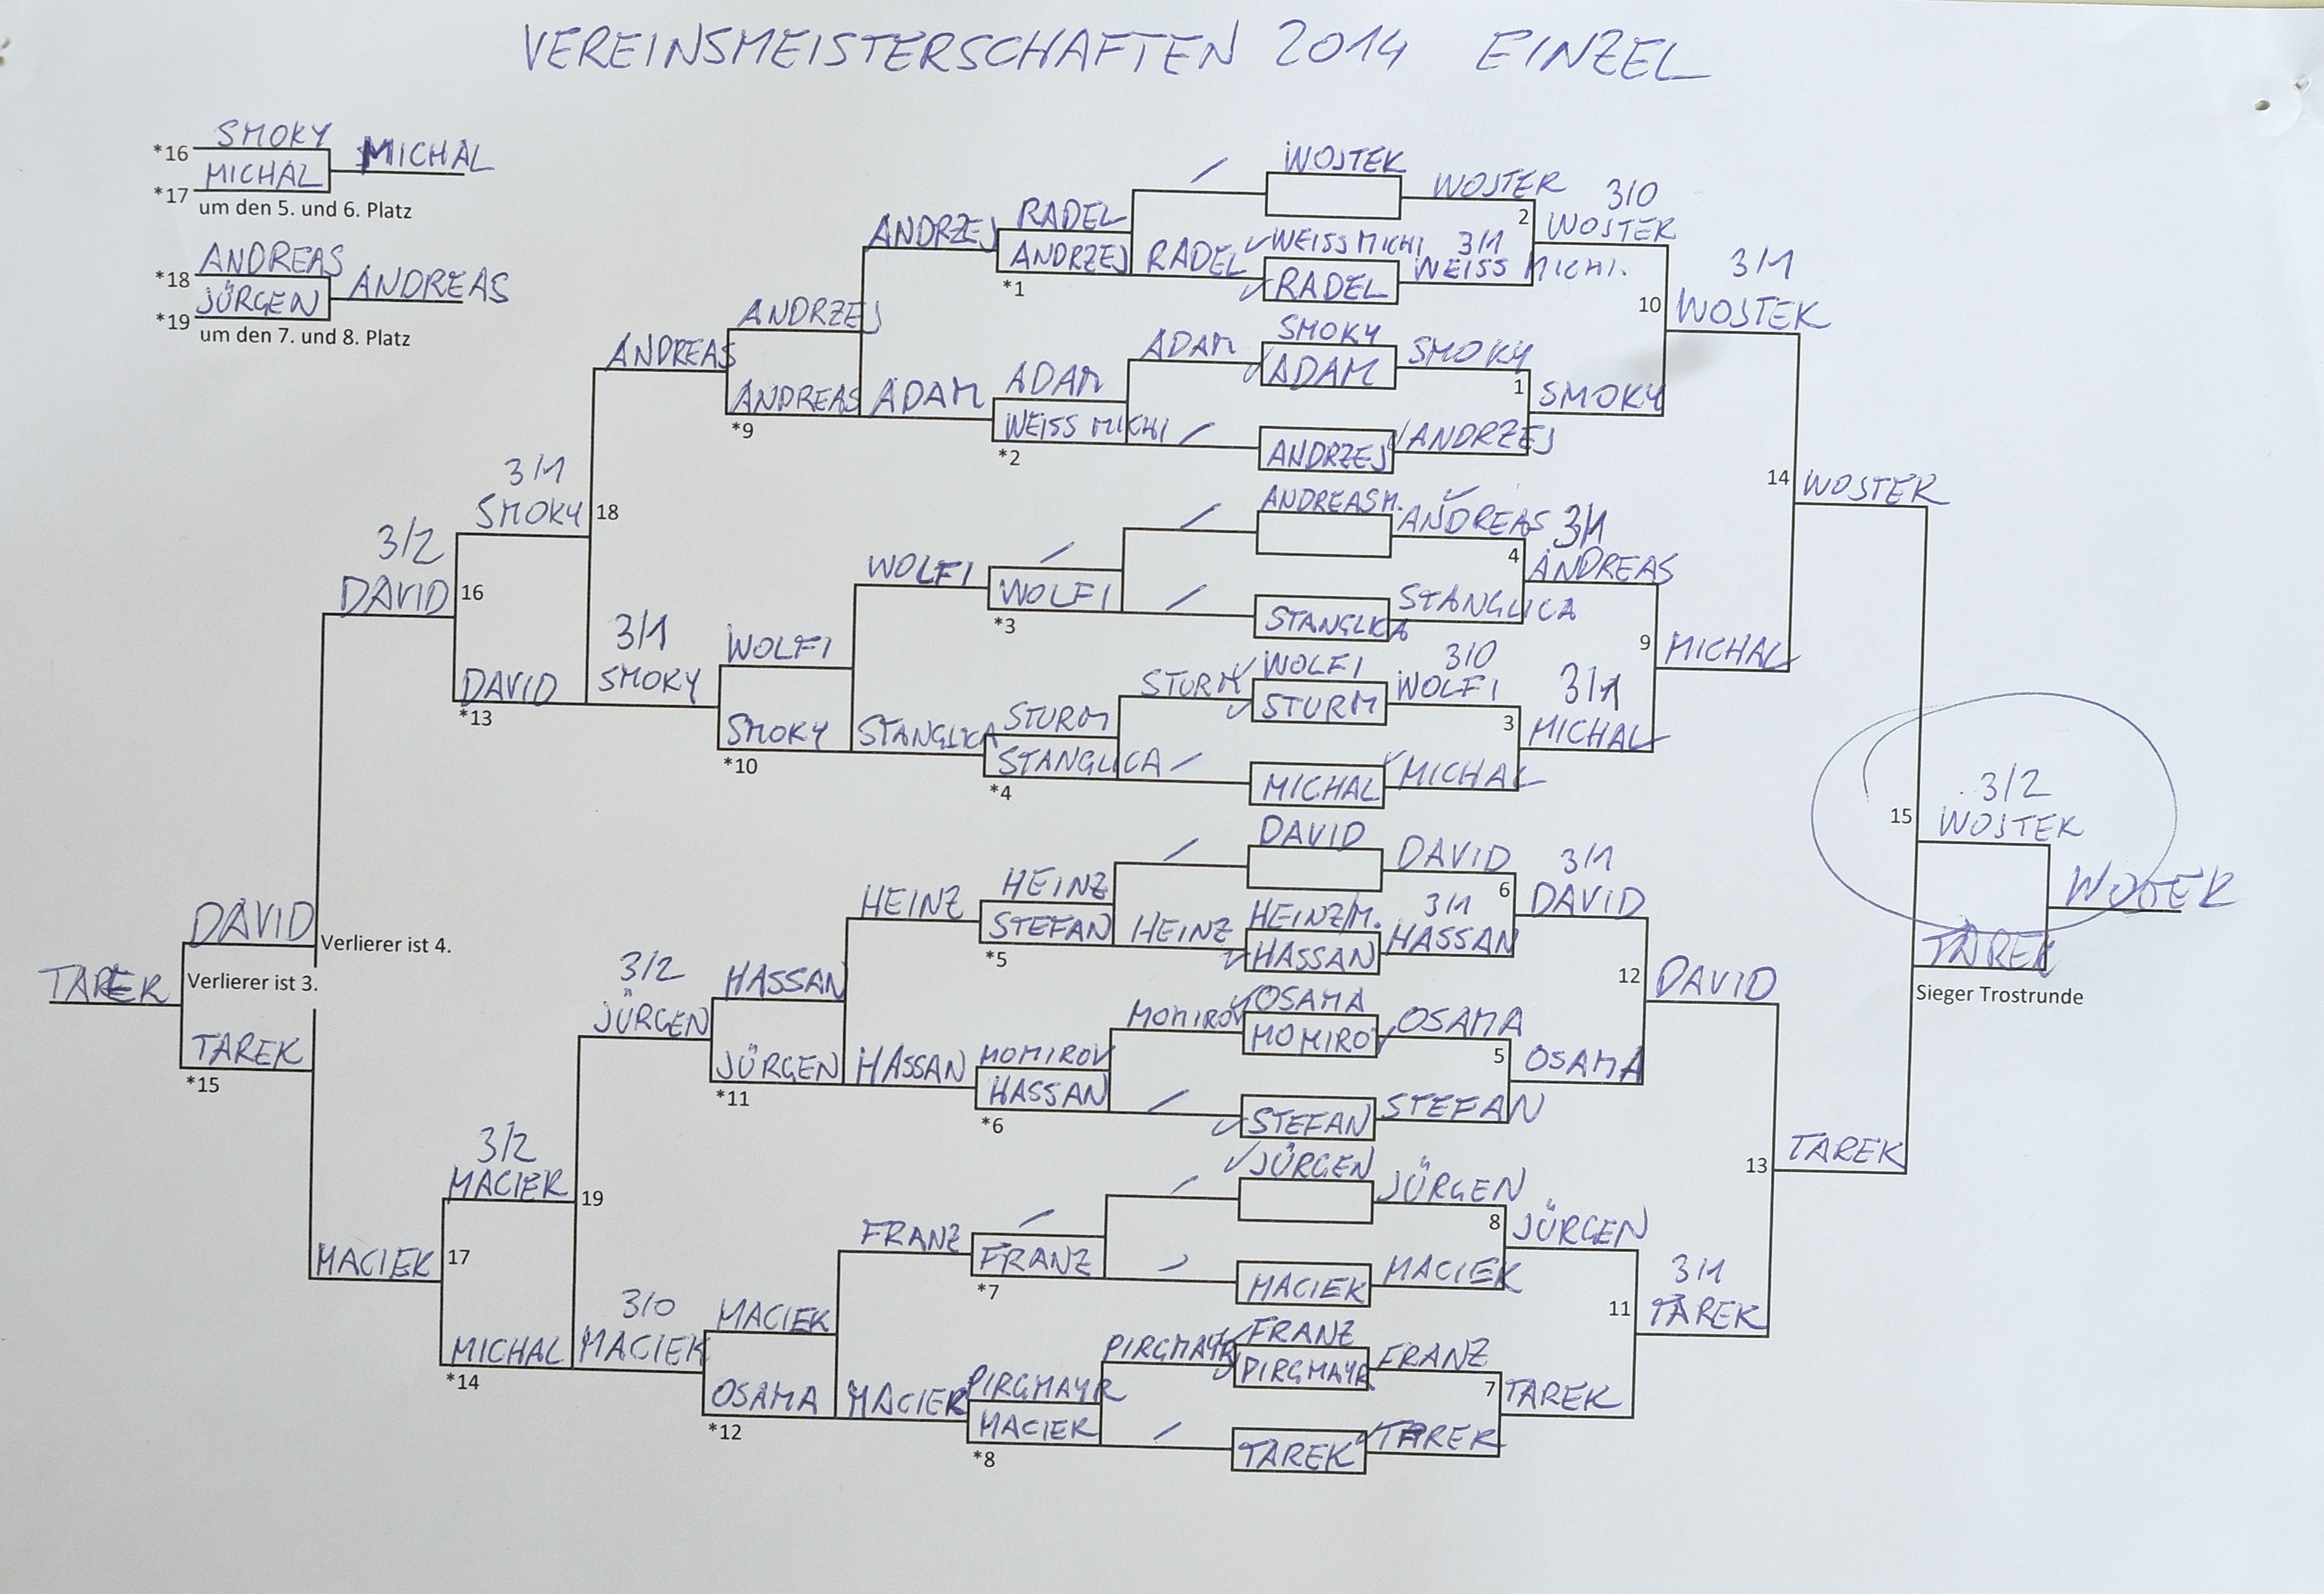 VEREINSMEISTERSCHAFTEN 2014 EINZEL
*16 SMOKY
MICHAL
*17 MICHAL
um den 5. und 6. Platz
*18 ANDREAS
ANDREAS
*19 JÜRGEN
um den 7. und 8. Platz
TAREK
DAVID
Verlierer ist 4.
Verlierer ist 3.
TAREK
*15
3/2
DAVID
MACIEK
3/1
SMOKY
16
DAVID
*13
3/2
MACIER
17
MICHAL
*14
ANDREAS
18
3/1
SMOKY
3/2
JÜRGEN
19
3/0
MACIEK
ANDRZEJ
ANDREAS
*9
WOLFI
SMOKY
*10
HASSAN
JÜRGEN
*11
MACIEK
OSAMA
*12
ANDRZEJ
ADAM
WOLFI
STANGLICA
HEINZ
HASSAN
FRANZ
MACIER
RADEL
ANDRZEJ
*1
ADAM
WEISS MICHI
*2
WOLFI
*3
STURM
STANGLICA
*4
HEINZ
STEFAN
*5
MOMIROV
HASSAN
*6
FRANZ
*7
PIRGMAYR
MACIER
*8
RADEL
ADAM
STURM
HEINZ
MOMIROV
PIRGMAYR
WOJTEK
WEISS MICHI
RADEL
SMOKY
ADAM
ANDRZEJ
ANDREAS M.
STANGLICA
WOLFI
STURM
MICHAL
DAVID
HEINZ M.
HASSAN
OSAMA
MOMIRO
STEFAN
JÜRGEN
MACIEK
FRANZ
PIRGMAYR
TAREK
WOJTER
2
3/1
WEISS MICHI.
SMOKY
1
ANDRZEJ
ANDREAS
4
STANGLICA
3/0
WOLFI
3
MICHAL
DAVID
6
3/1
HASSAN
OSAMA
5
STEFAN
JÜRGEN
8
MACIEK
FRANZ
7
TAREK
3/0
WOJTER
10
SMOKY
3/1
ANDREAS
9
3/1
MICHAL
3/1
DAVID
12
OSAMA
JÜRGEN
11
TAREK
3/1
WOJTEK
14
MICHAL
DAVID
13
3/1
TAREK
WOJTER
15
TAREK
3/2
WOJTEK
TAREK
Sieger Trostrunde
WOJTER